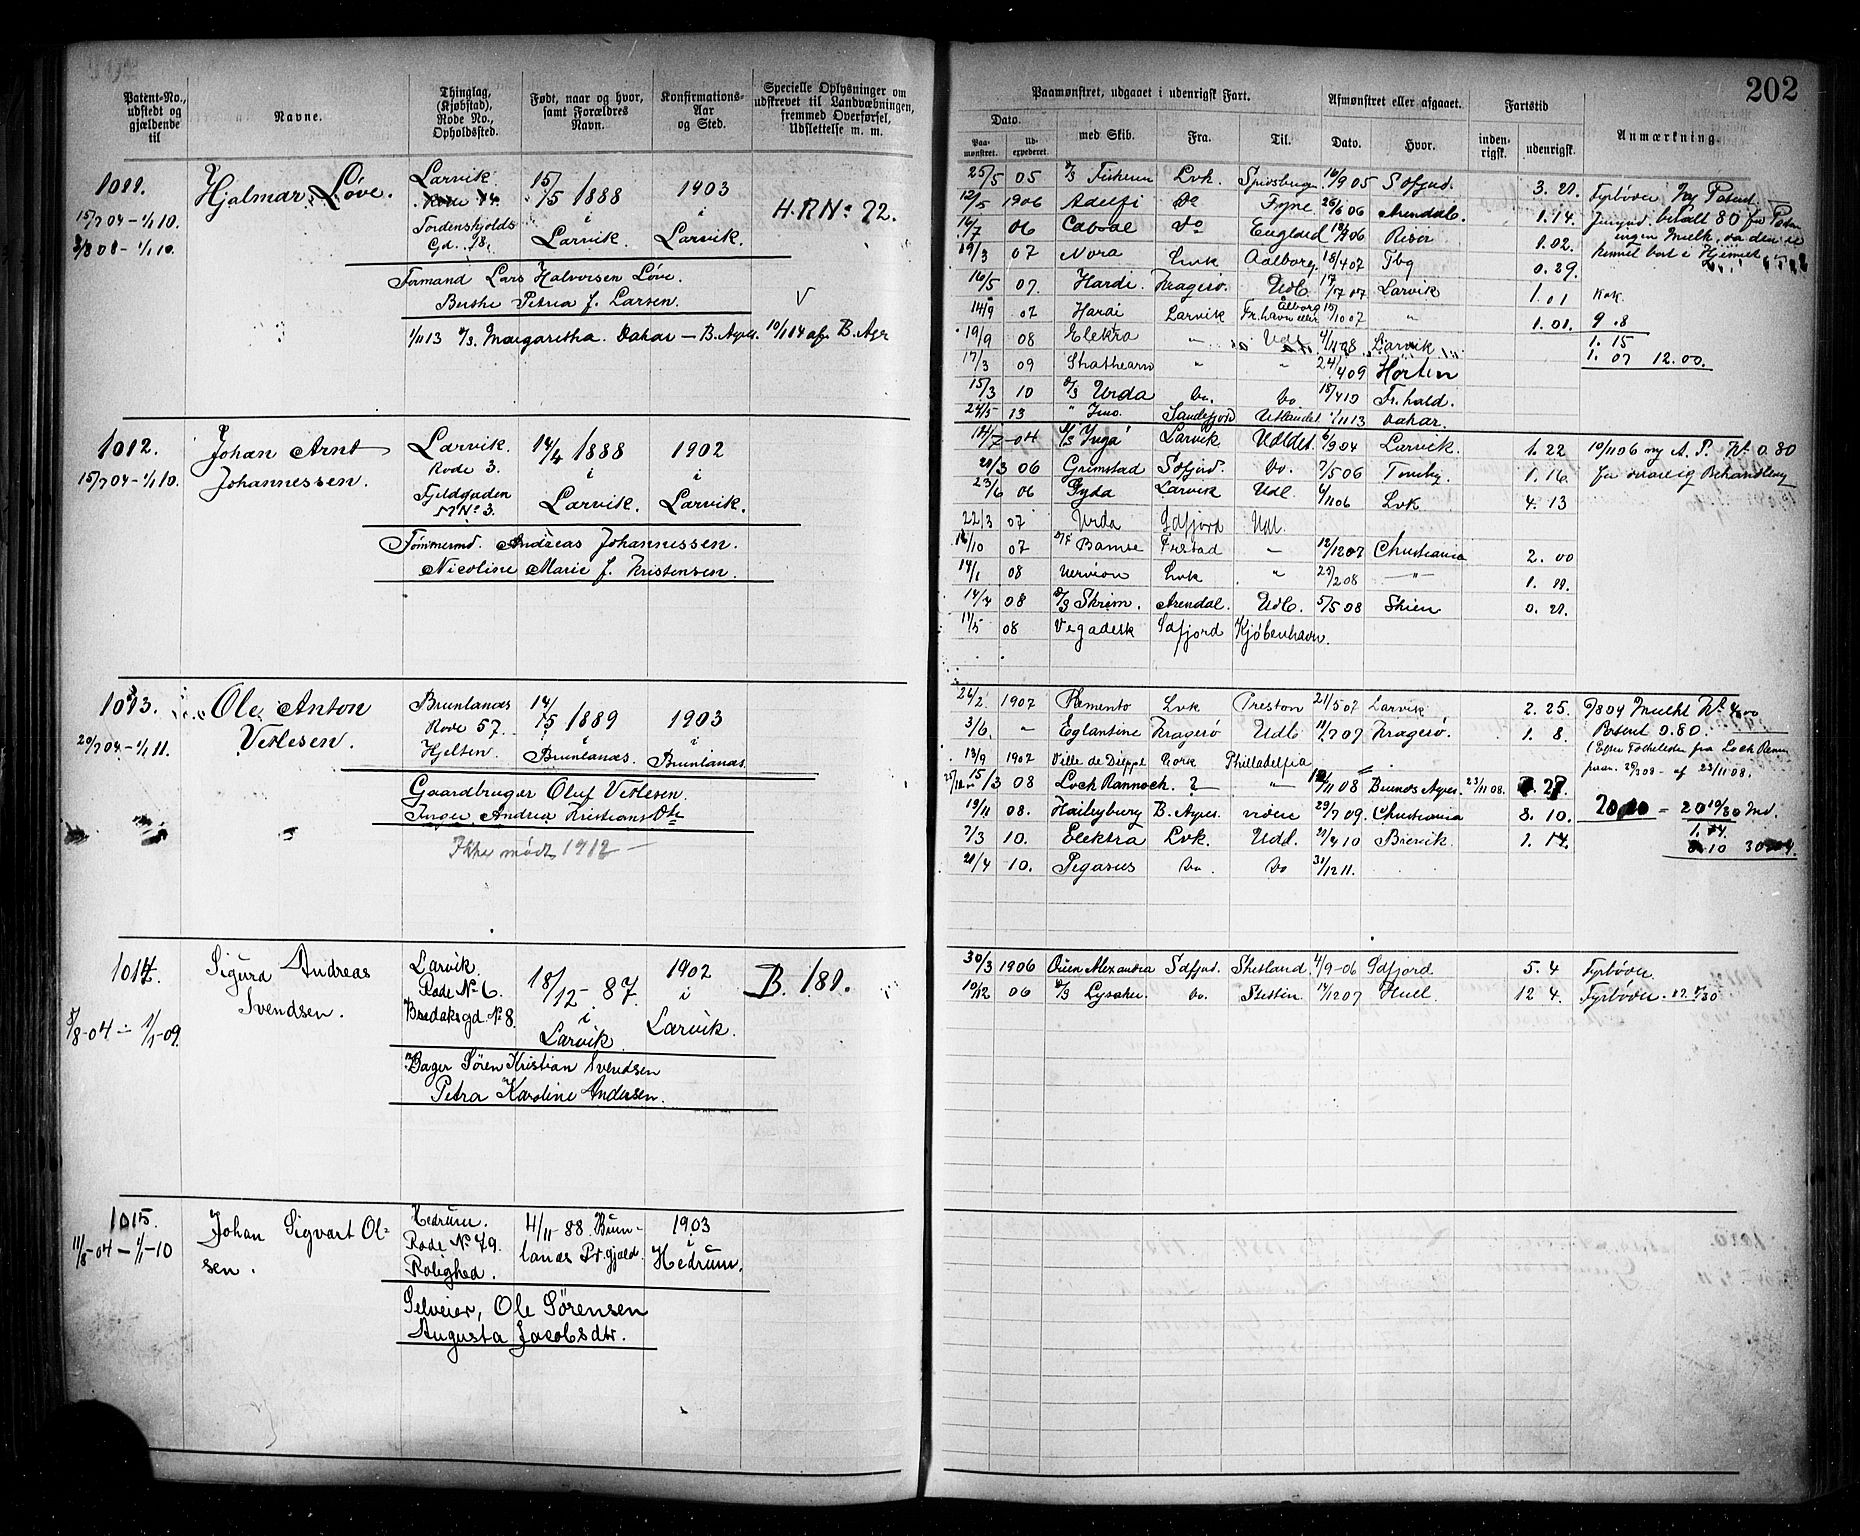 202
Patent-No., udstedt og gjældende til
Navne.
Thinglag, (Kjøbstad), Rode No., Opholdssted.
Født, naar og hvor, samt Forældres Navn.
Konfirmations-Aar og Sted.
Specielle Oplysninger om udskrevet til Landværbningen, fremmed Overførsel, Udslettelse m. m.
Paamønstret, udgaaet i udenrigsk Fart.
Afmønstret eller afgaaet.
Fartstid
Anmærkning.
Dato.
Paa-mønstret.
Ud-expederet.
med Skib.
Fra.
Til.
Dato.
Hvor.
inden-rigsk.
udenrigsk.
1011.
15/7 04 - 1/1 10.
3/8 08 - 1/1 10.
Hjalmar Løve.
Larvik.
Tordenskjolds
Gd. 18.
15/5 1888
i
Larvik.
1903
i
Larvik.
H.R.No. 72.
Formand Lars Halvorsen Løve.
Berthe Petria f. Larsen.
1/11 13 D/S. Margaretha. Dakar - B. Ayres. 10/1 14 afg. B. Ayr
25/5 05 Lvk. 16/9 05 Sdfjrd. 3. 21. Fyrbøder
12/5 1906 Adelfi Do Tyne 26/6 06 Arendal. 1. 14.
16/7 06 Do England Risør 1. 02.
19/3 07 Nora Lvk Aalborg 18/4 07 Tbg 0. 29.
16/5 07. Hardi. Kragerø. Udl. 17/7 07 Larvik 1. 01 Kok.
14/9 07 Hardi Larvik Fr.havn eller Ålborg 15/10 07 " 1. 01. 9. 8
19/9 08 Elektra " Udl 4/11 08 Larvik 1. 15
17/3 09 Strathearn " " 24/4 09 Horten 1. 07 12.00.
15/3 10 D/S Urda do. do 18/4 10 Fr.hald.
24/5 13 " Sandefjord Utlandet 1/11 13 Dakar.
1012.
15/7 04 - 1/1 10.
Johan Arnt
Johannessen.
Larvik.
Rode 3.
Fjeldgaden
M.No. 3.
14/4 1888
i
Larvik.
1902
i
Larvik.
Tømmermd. Andreas Johannessen.
Nicoline Marie f. Kristensen.
14/7 - 04 D/S Inga Larvik Udldet 6/9 04 Larvik. 1. 22 10/11 06 ny A. P. Kr. 0.80
21/3 06 Grimstad Sdfjrd. do. 7/5 06 1. 16.
23/6 06 Gyda Larvik Udl. 4/11 06 Lvk 4. 13
22/3 07 Urda Sdfjord Udl.
16/10 07 D/S Bamse Frstad " 12/12 07 Christiania 2. 00
14/1 08 Lvk " 25/2 08 " 1. 11.
14/4 08 D/S Skrim. Arendal. Udl. 5/5 08 Skien 0. 21.
17/5 08 Vegadesk Sdfjord Kjøbenhavn.
1013.
20/7 04. - 1/1 11.
Ole Anton
Vetlesen.
Brunlanæs
Rode 57.
Hjelten.
14/5 1889
i
Brunlanæs.
1903
i
Brunlanæs.
Gaardbruger Oluf Vetlesen.
Inger Andrea Kristians Dtr
Ikke mødt 1912
26/2 1907 Memento Lvk Preston 21/5 07 Larvik 2. 25. 9/8 04 Mulkt Kr. 4.00
3/6. " Eglantine Kragerø Udl 11/7 07 Kragerø. 1. 8. Patent 0.80.
13/9 1907 Ville de Dieppe Cork Philladelfia (Efter Forholdet fra Loch Rann
15/3 08 Loch Rannoch. ? " 12/11 08 Buenos Ayres. 23/11 08. 27.
19/11 08. Haileybury B. Ayres. 29/7 09. Christiania 8. 10. = 20 19/30 Md.
7/3 10. Elektra Lvk. Udl. 21/4 10 Brevik. 1. 14.
21/4 10. Pegasus do. do 31/12 11.
1014.
5/8-04 - 1/1-09.
Sigurd Andreas
Svendsen.
Larvik.
Rode No. 6.
Bredaksgd. No. 8.
18/12 - 87.
i
Larvik.
1902
i
Larvik.
B. 181.
Bager Søren Kristian Svendsen
Petra Karoline Andersen.
30/3 1906 Orien Alexandra Sdfjrd. Shetland. 4/9-06 Sdfjord 5. 4 Fyrbøder
10/12 06 D/S Lysaker. do. Stettin 14/12 07 Hull. 12 4. Fyrbøder.
1015.
11/8-04 - 1/1-10
Johan Sigvart Ol-
sen.
Hedrum.
Rode No. 79.
Rolighed.
4/11 88. Brun-
lanæs Pr.gjæld.
1903
i
Hedrum.
Selveier, Ole Sørensen
Augusta Jacobsdtr.